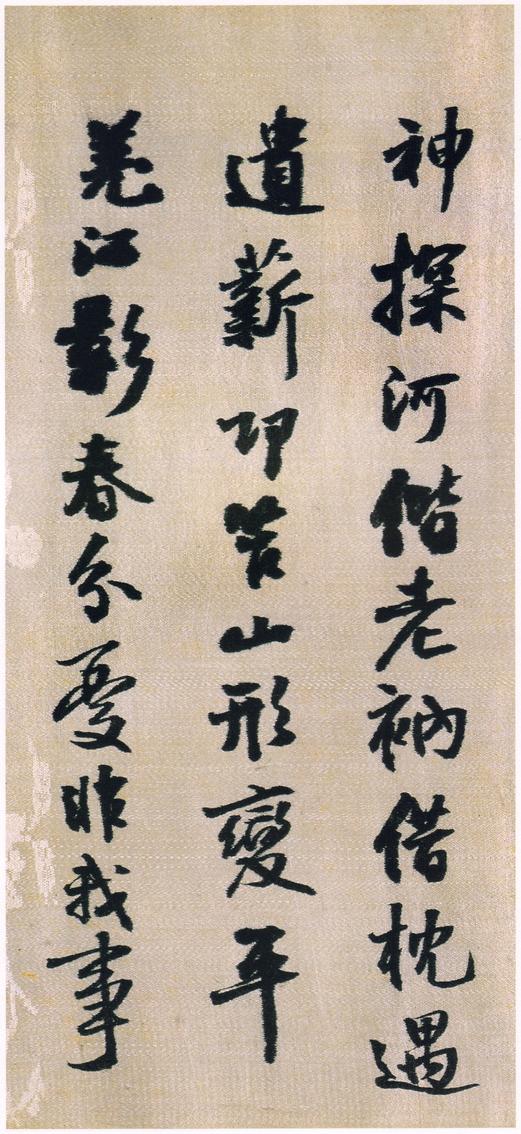 神探河偕老衲借枕遇
遺薪卭笮山形變平
羌江影春分憂昨我事